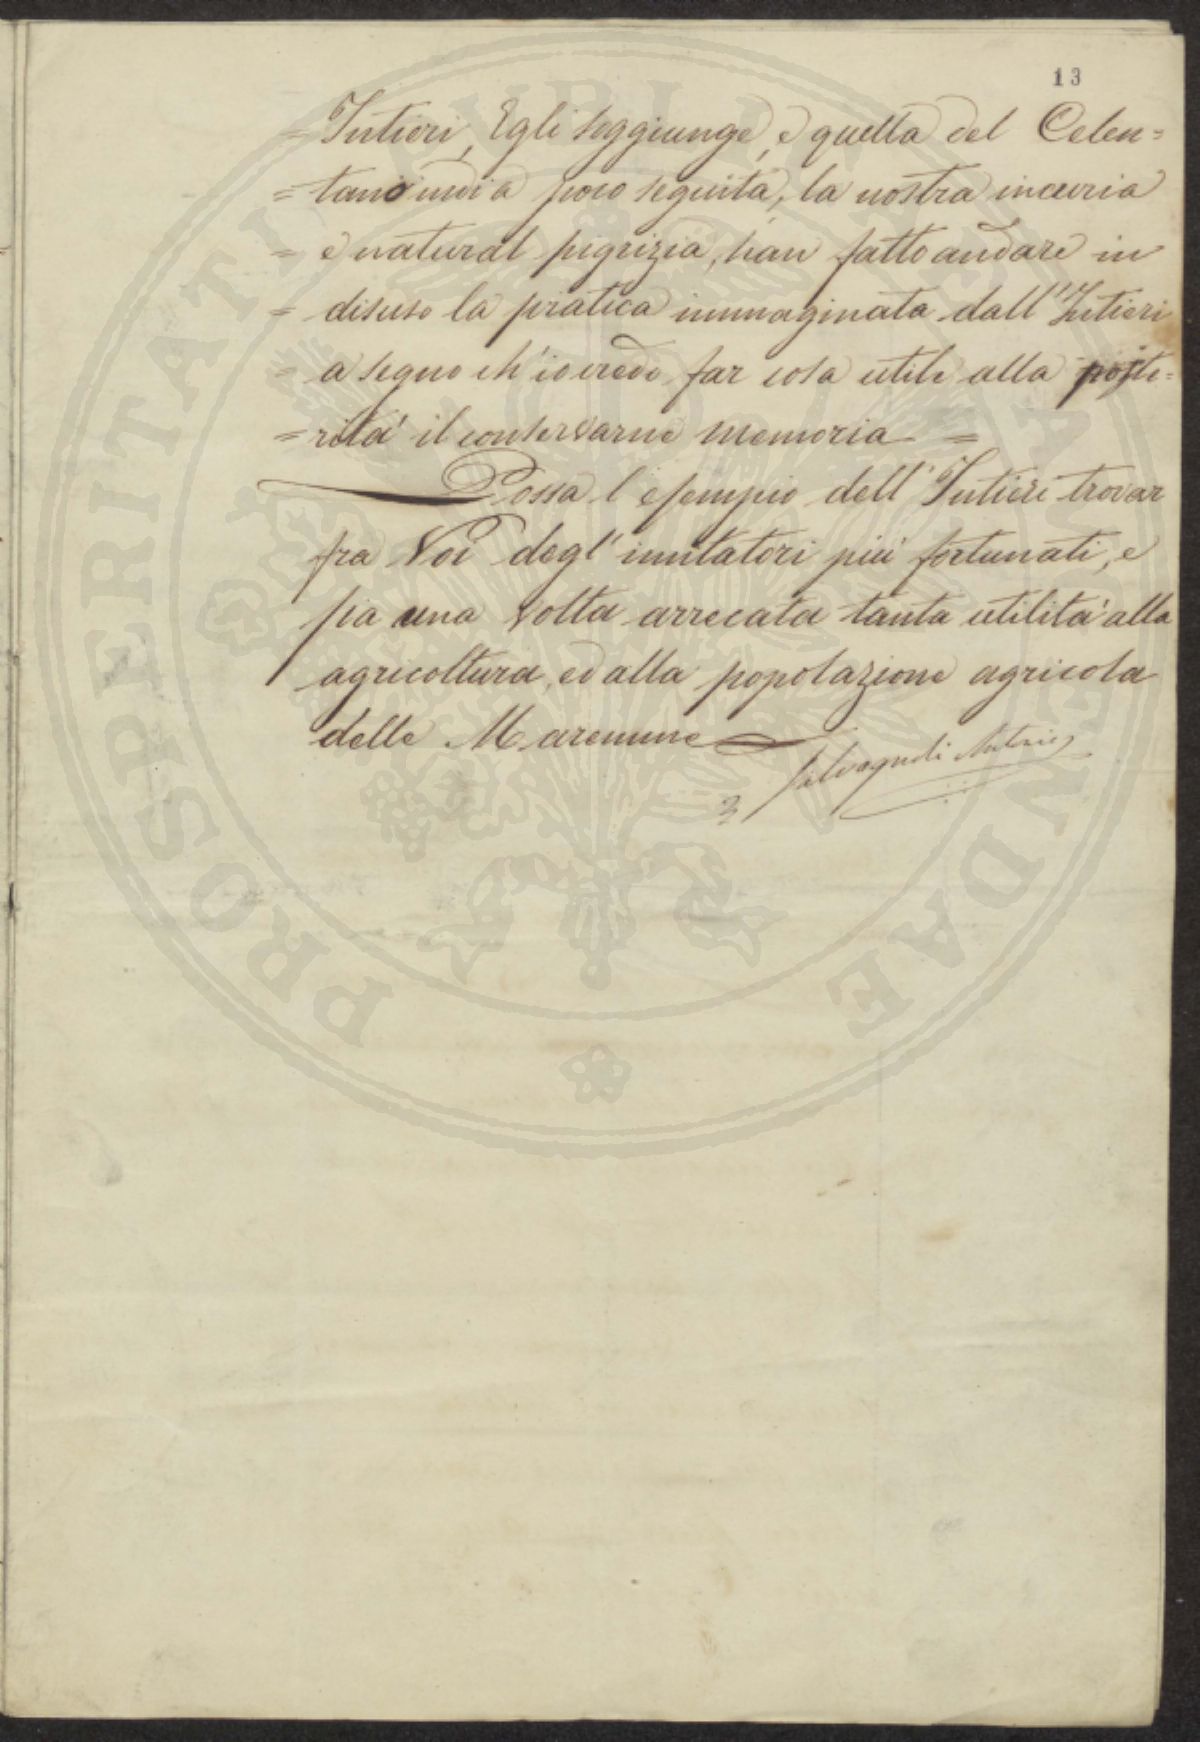 13
= Intieri, Egli soggiunge, e quella del Celen=
= tano indi a poco seguita, la nostra incuria
= e natural pigrizia, han fatto andare in
= disuso la pratica immaginata dall'Intieri
= a segno ch'io credo far cosa utile alla poste=
= rità il conservarne memoria =
Possa l'esempio dell'Intieri trovar
fra Noi degl'imitatori più fortunati, e
sia una volta arrecata tanta utilità alla
agricoltura, ed alla popolazione agricola
delle Maremme
Salvagnoli Antonio
PROSPERITATI PUBLICAE AUGENDAE